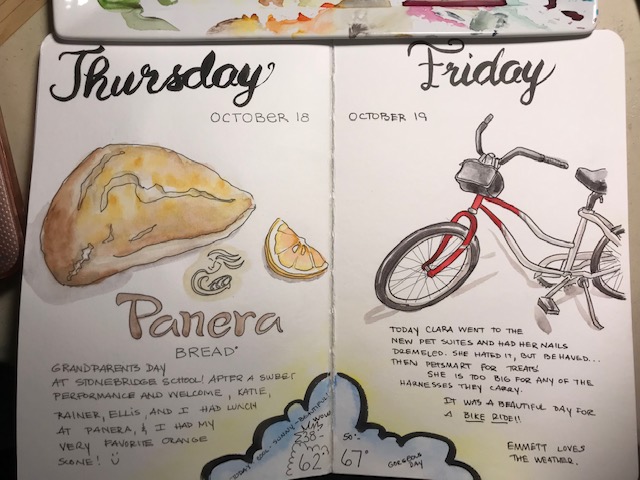 Thursday
OCTOBER 18
Panera
BREAD
GRANDPARENTS DAY
AT STONEBRIDGE SCHOOL! AFTER A SWEET
PERFORMANCE AND WELCOME, KATIE,
RAINER, ELLIS, AND I HAD LUNCH
AT PANERA, & I HAD MY
VERY FAVORITE ORANGE
SCONE!
COOL SUNNY BEAUTIFUL!
WOW
38-
62°
Friday
OCTOBER 19
TODAY CLARA WENT TO THE
NEW PET SUITES AND HAD HER NAILS
DREMELED. SHE HATED IT, BUT BEHAVED...
THEN PETSMART FOR TREATS!
SHE IS TOO BIG FOR ANY OF THE
HARNESSES THEY CARRY.
IT WAS A BEAUTIFUL DAY FOR
A BIKE RIDE!!
EMMETT LOVES
THE WEATHER.
50°-
67°
GORGEOUS
DAY